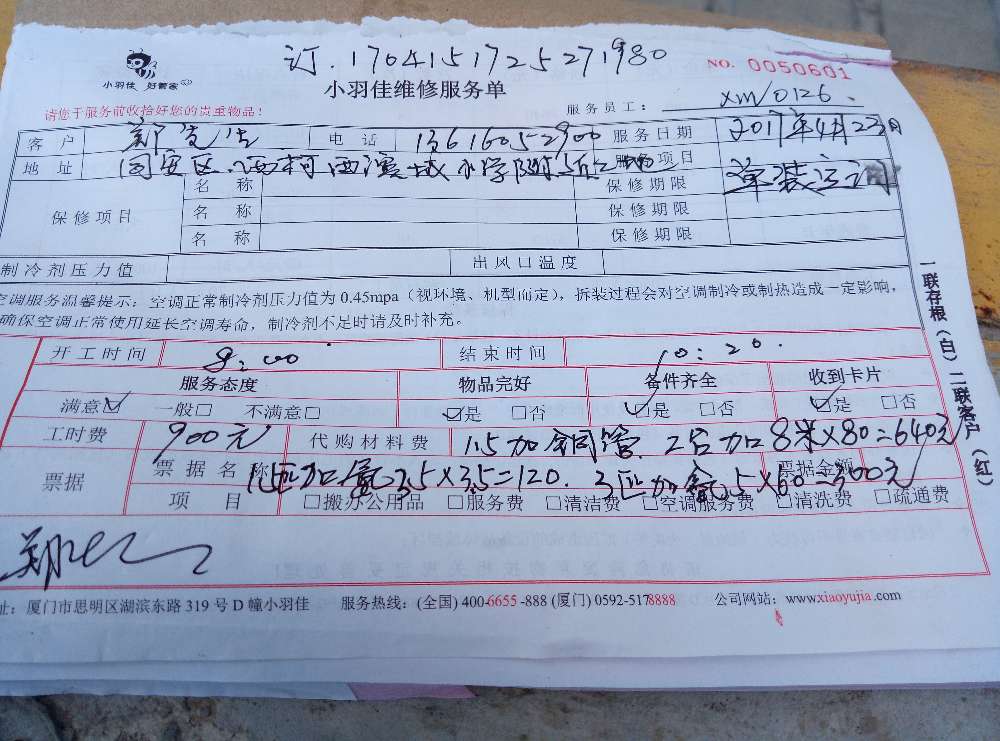 订.1704151725271980
小羽佳 好管家
小羽佳维修服务单
NO. 0050601
请您于服务前收拾好您的贵重物品!
服务员工: xm/0126.
客户 电话 13616052900 服务日期 2017年4月23日
地址 同安区.西柯西滨城小学附近 项目
保修项目 名称 保修期限
名称 保修期限
名称 保修期限
制冷剂压力值 出风口温度
空调服务温馨提示: 空调正常制冷剂压力值为 0.45mpa(视环境、机型而定), 拆装过程会对空调制冷或制热造成一定影响,
确保空调正常使用延长空调寿命, 制冷剂不足时请及时补充。
开工时间 8:00 结束时间 10:20.
服务态度 物品完好 备件齐全 收到卡片
满意☑ 一般□ 不满意□ ☑是 □否 ☑是 □否 ☑是 □否
工时费 900元 代购材料费 1.5加铜管 2台加8米×80=640元
票据 票据名称 1.5匹加氟3.5×35=120. 3匹加氟5×60=300元 票据金额
项目 □搬办公用品 □服务费 □清洁费 □空调服务费 □清洗费 □疏通费
址: 厦门市思明区湖滨东路 319 号 D 幢小羽佳 服务热线: (全国) 400-6655-888 (厦门) 0592-5178888 公司网站: www.xiaoyujia.com
一联存根(白) 二联客户(红)